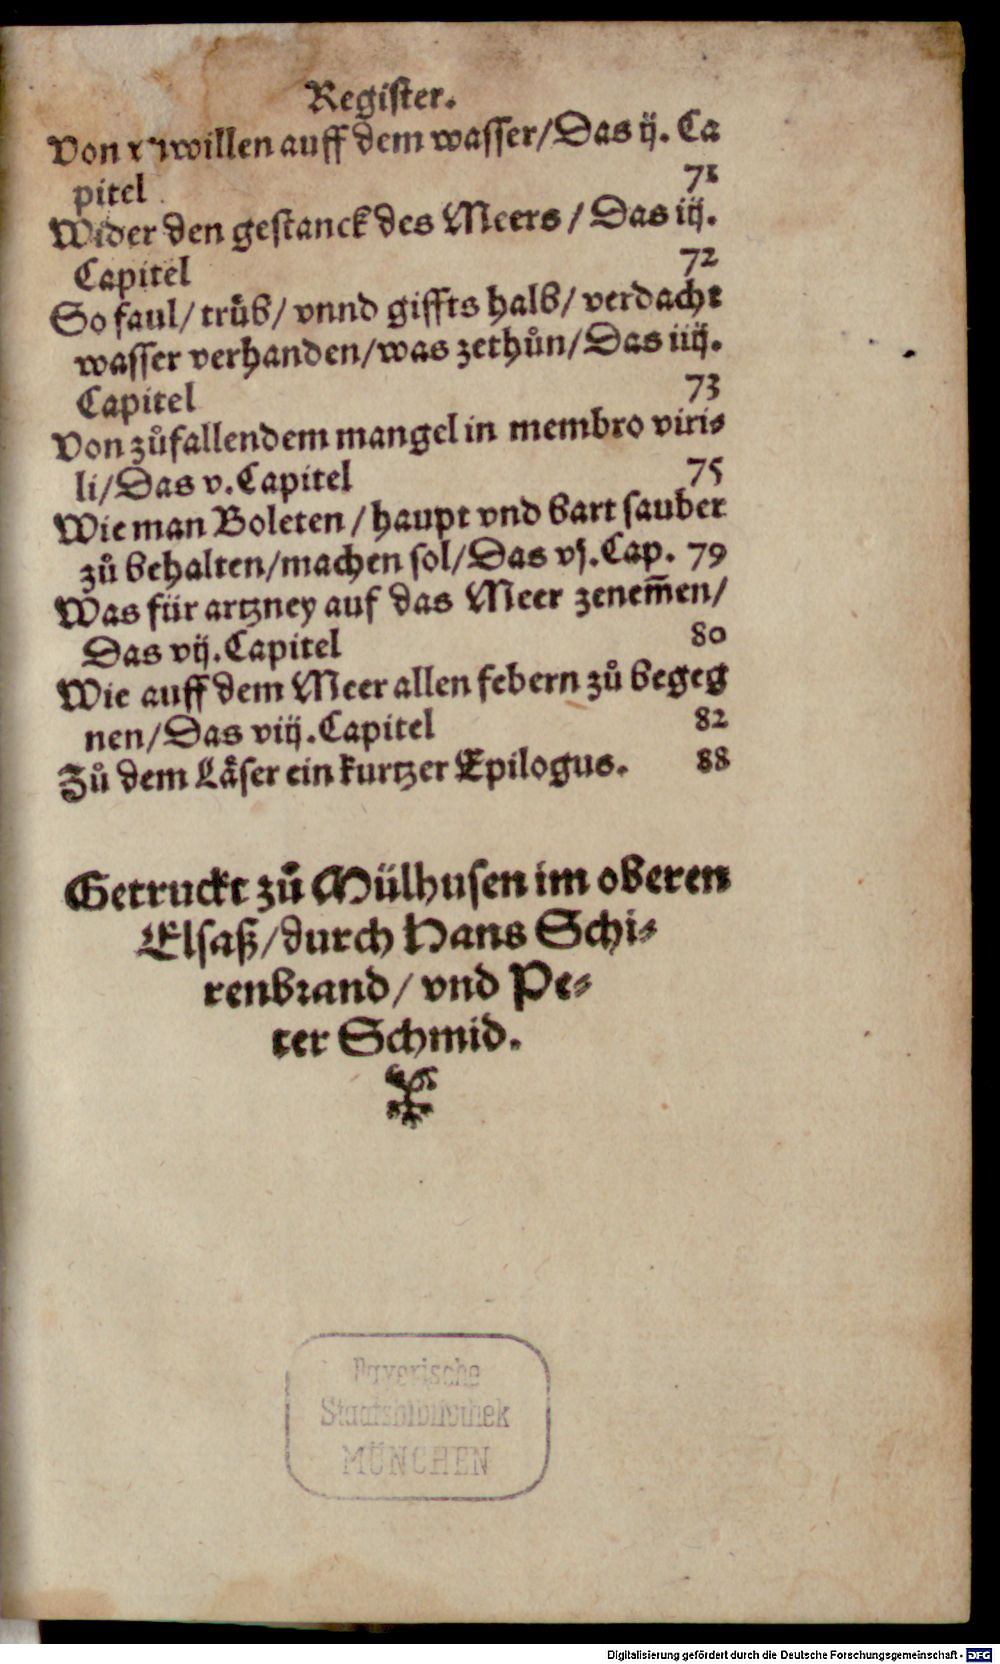 Register.
Von vnwillen auff dem wasser/Das ij. Ca
pitel 71
Wider den gestanck des Meers / Das iij.
Capitel 72
So faul/ trüb/ vnnd giffts halb/ verdacht
wasser verhanden/was zethůn/Das iiij.
Capitel 73
Von zůfallendem mangel in membro viri⸗
li/Das v. Capitel 75
Wie man Boleten / haupt vnd bart sauber
zů behalten/machen sol/Das vj. Cap. 79
Was für artzney auf das Meer zenem̄en/
Das vij. Capitel 80
Wie auff dem Meer allen febern zů begeg
nen/Das viij. Capitel 82
Zů dem Läser ein kurtzer Epilogus. 88
Getruckt zů Mülhusen im oberen
Elsaß/durch Hans Schi⸗
renbrand/ vnd Pe⸗
ter Schmid.
Bayerische
Staatsbibliothek
MÜNCHEN
Digitalisierung gefördert durch die Deutsche Forschungsgemeinschaft - DFG